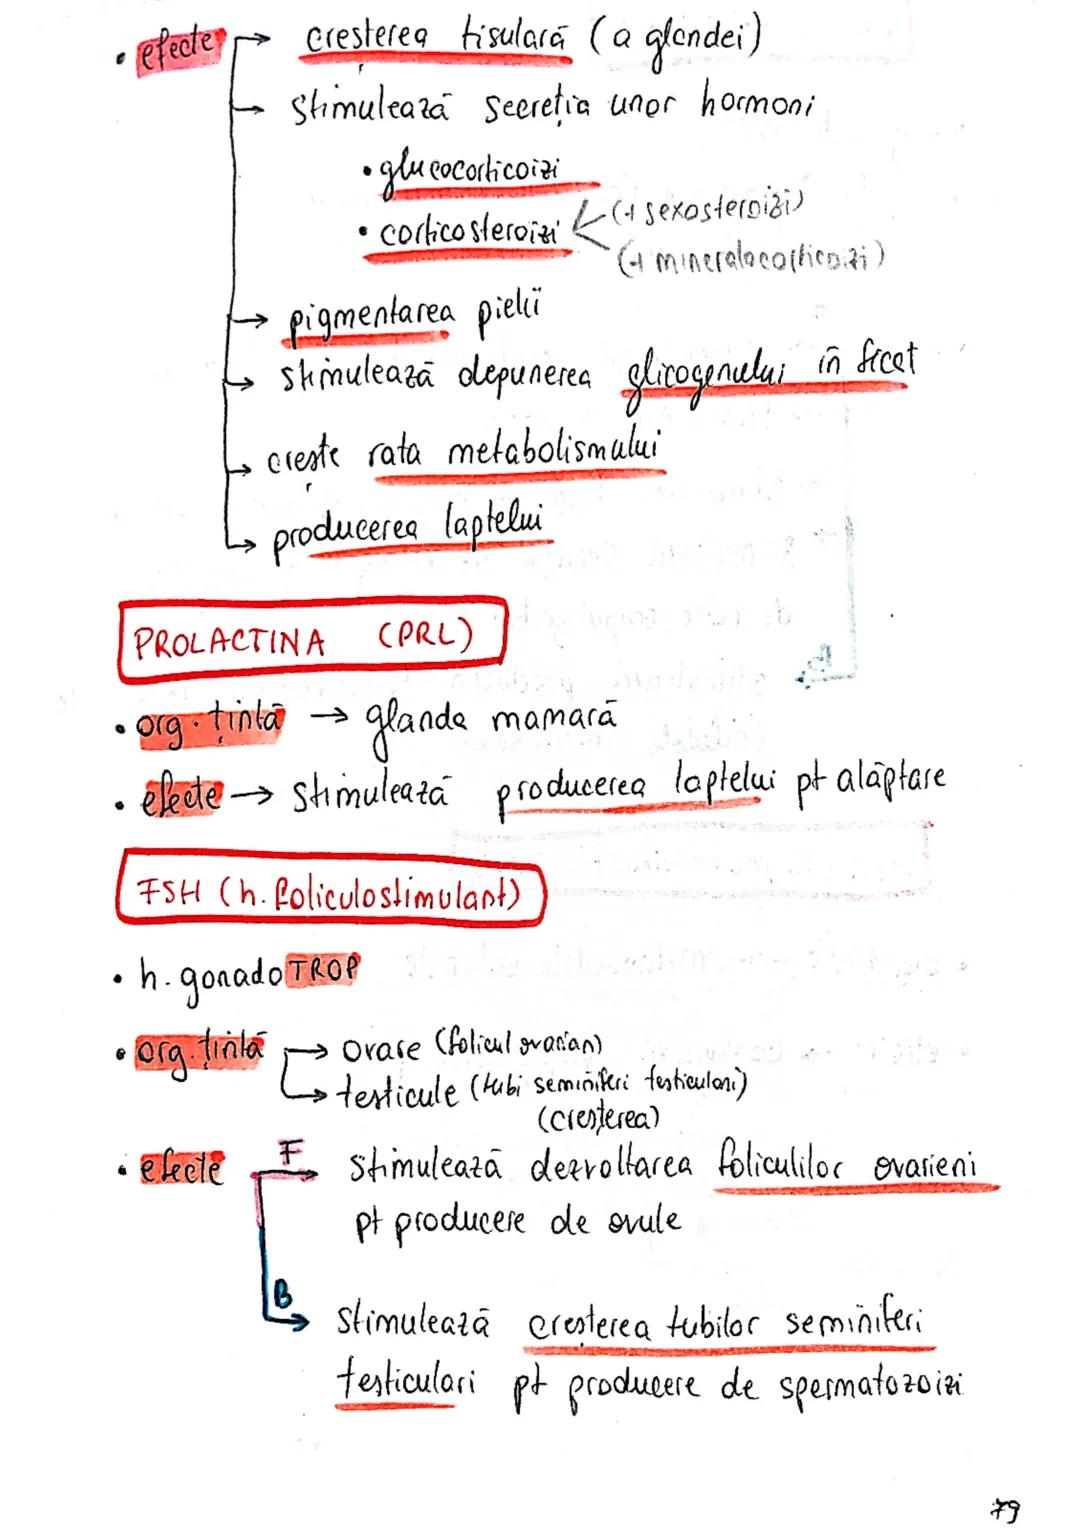 • efecte → creșterea tisulară (a glandei)
→ stimulează secreția unor hormoni
• glucocorticoizi
• corticosteroizi (+ sexosteroizi)
(+ mineralocorticoizi)
→ pigmentarea pielii
→ stimulează depunerea glicogenului în ficat
→ crește rata metabolismului
→ producerea laptelui
PROLACTINA (PRL)
• org. țintă → glanda mamară
• efecte → stimulează producerea laptelui pt alăptare
FSH (h. foliculostimulant)
• h. gonadoTROP
• org. țintă → ovare (folicul ovarian)
→ testicule (tubi seminiferi testiculari)
(creșterea)
• efecte F → stimulează dezvoltarea foliculilor ovarieni
pt producere de ovule
B → stimulează creșterea tubilor seminiferi
testiculari pt producere de spermatozoizi
79